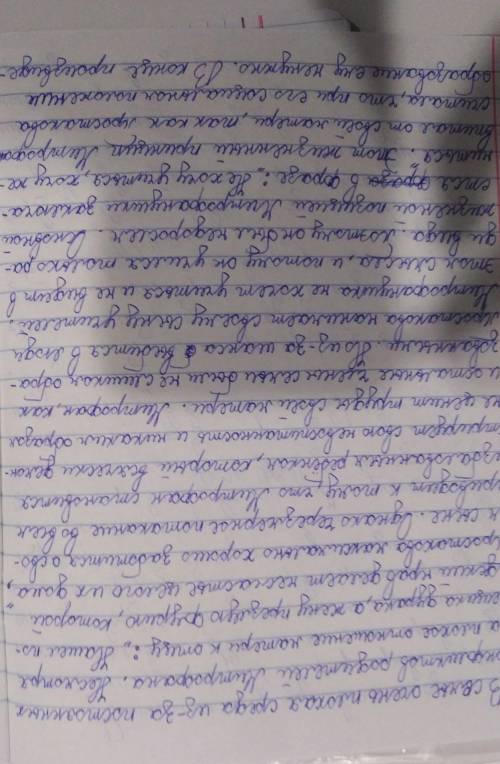 В семье очень плохая среда из-за постоянных
конфликтов родителей Митрофана. Несмотря
на плохое отношение матери к отцу: „Нашел по-
мещика дурака, а жену презлую фурию, которой
адский нрав делает несчастье целого их дома",
Простакова максимально хорошо заботится о сво-
ём сыне. Однако чрезмерное потакание во всём
приводит к тому, что Митрофан становится
избалованным ребёнком, который всячески демон-
стрирует свою невоспитанность и никаким образом
не ценит труды своей матери. Митрофан, как
и остальные члены семьи были не слишком обра-
зованными. Но из-за шанса выбиться в люди
Простакова нанимает своему сыну учителей.
Митрофанушка не хочет учиться и не видит в
этом смысла, и потому он учился только ра-
ди вида. Поэтому он был недорослем. Основной
жизненной позицией Митрофанушки заключа-
ется в фразе: „Не хочу учиться, хочу же-
ниться". Этот жизненный принцип Митрофан
впитал от своей матери, так как Простакова
считала, что при его социальном положении
образование ему ненужно. В конце произведе-